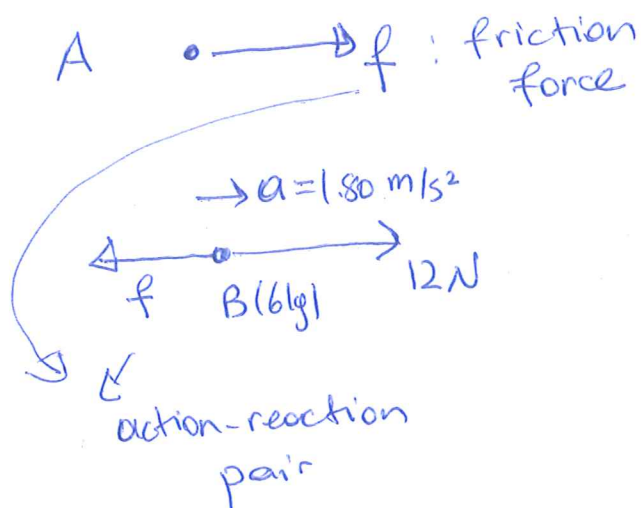 A f : friction
force
→ a = 1.80 m/s²
f B(6kg) 12N
action-reaction
pair